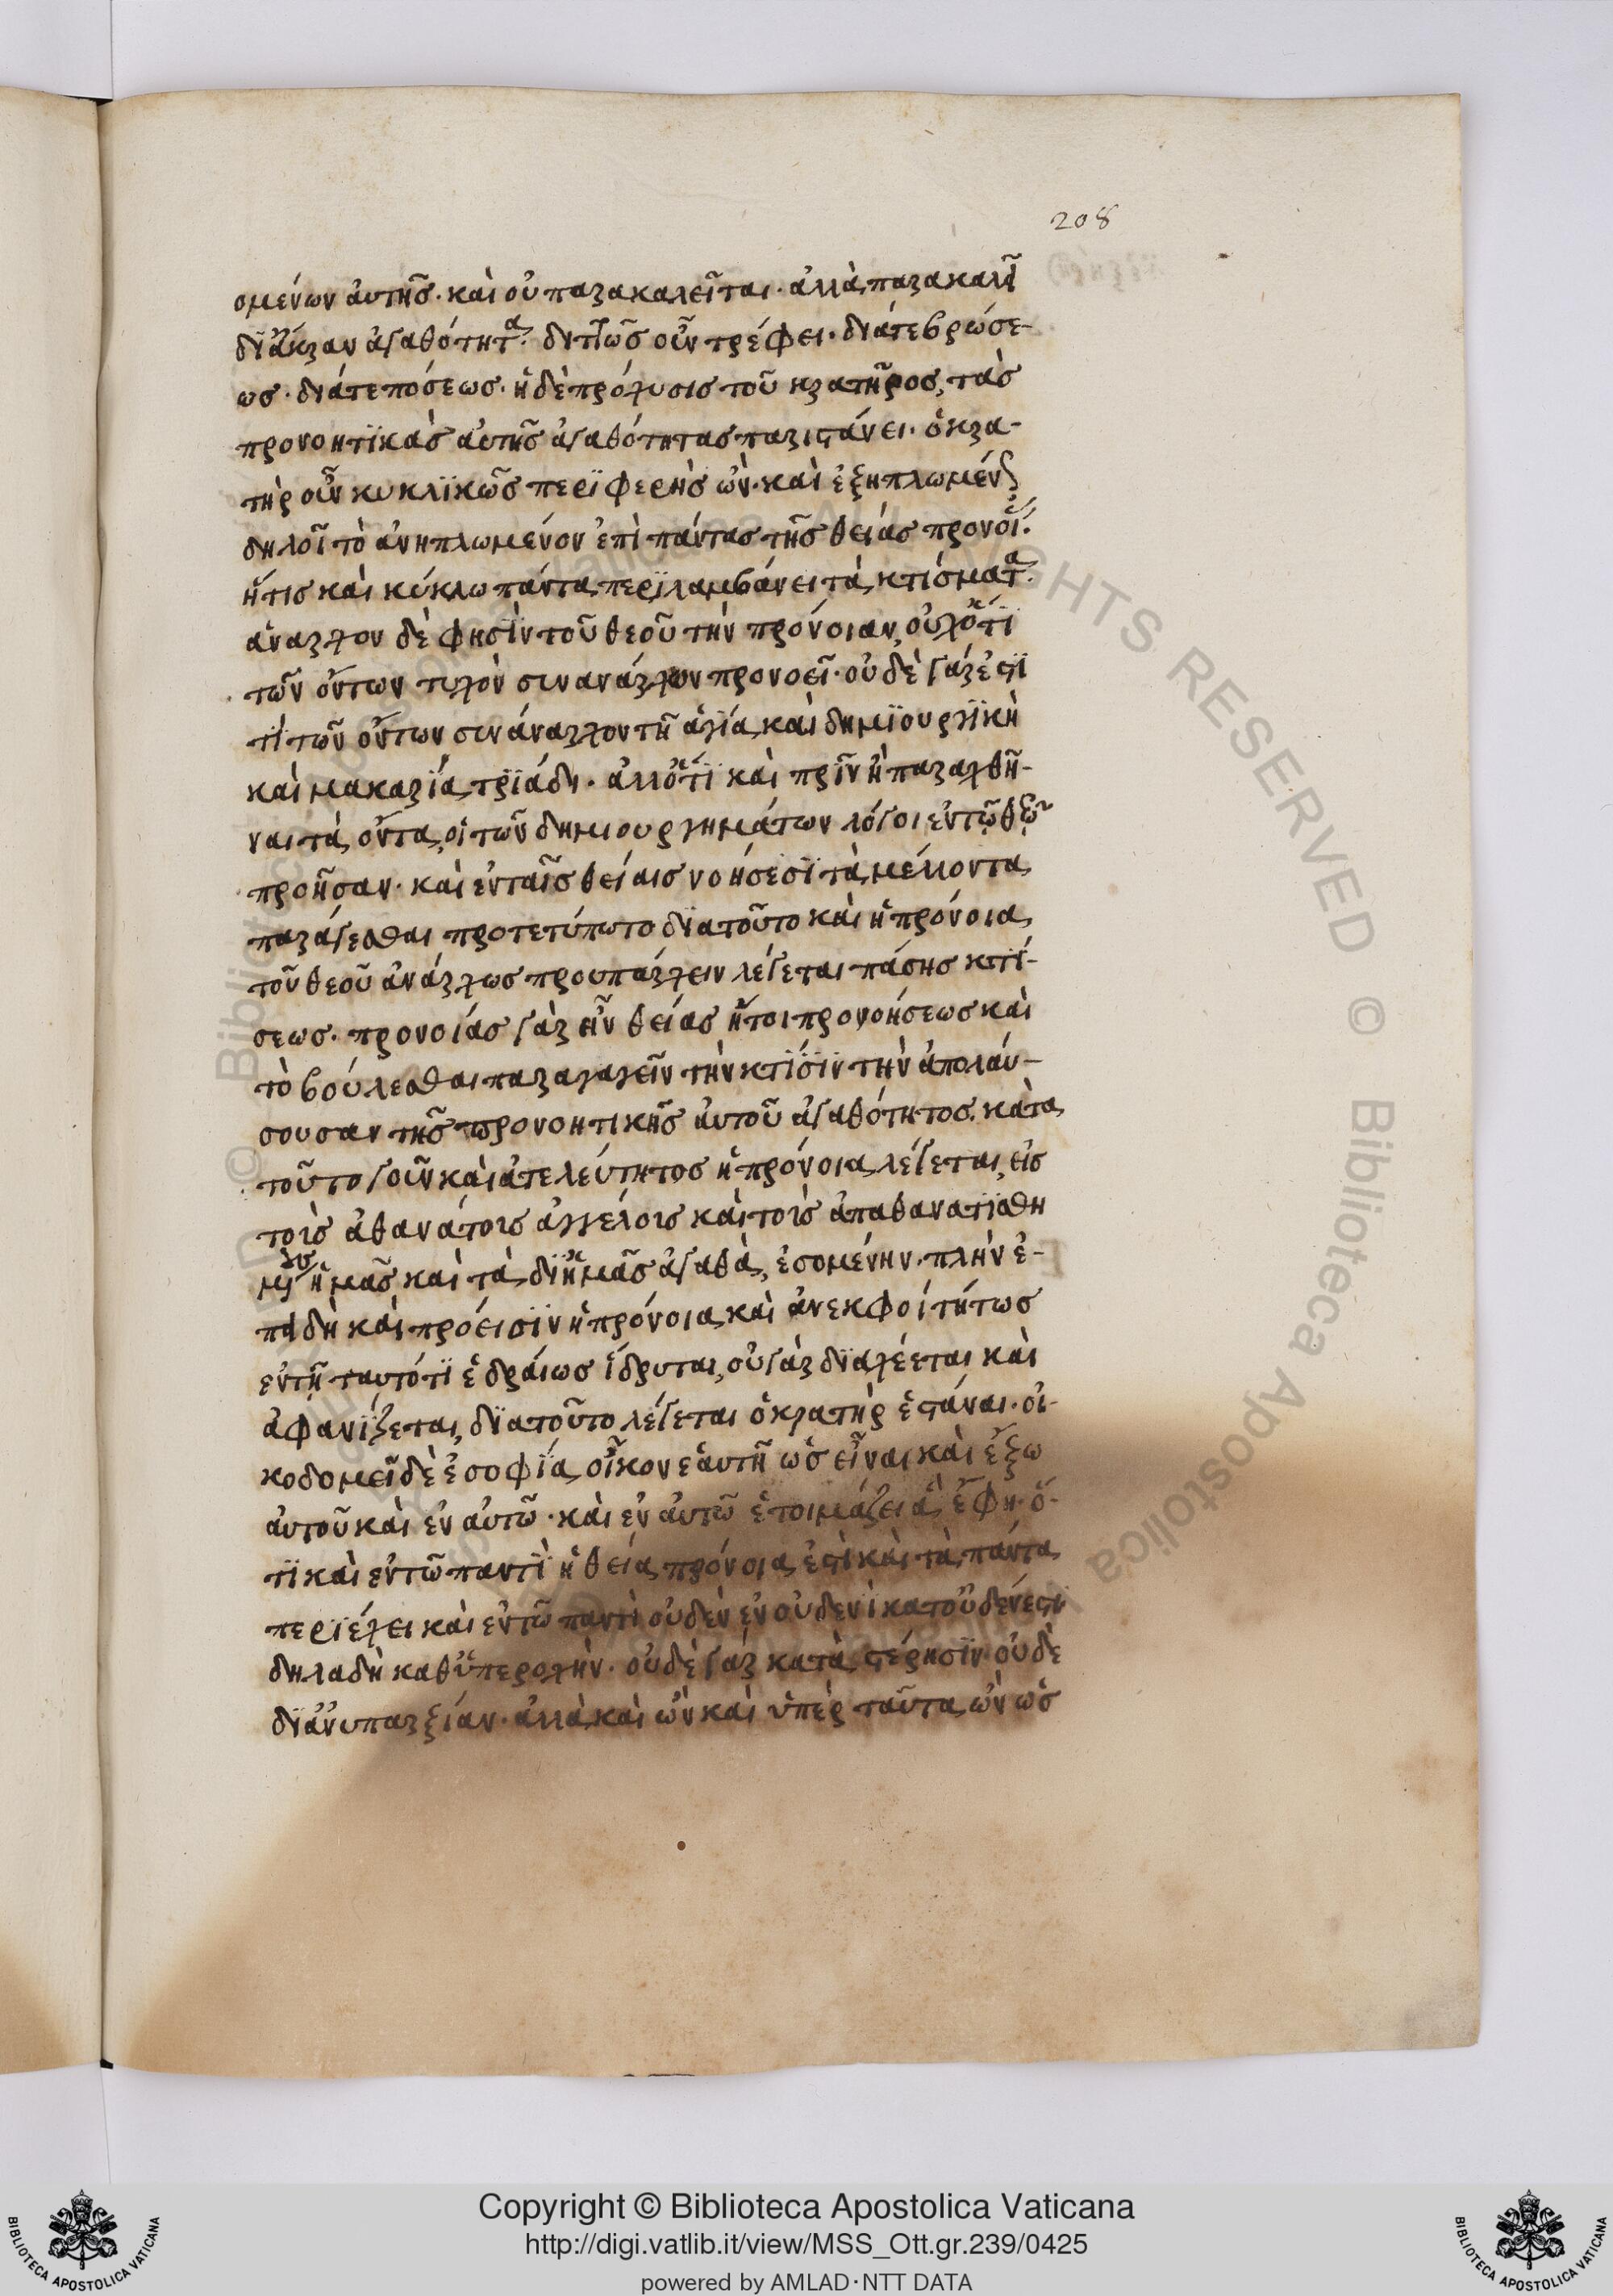 208
ομένων αὐτῆς· καὶ οὐ παρακαλεῖται· ἀλλὰ παρακαλεῖ
δι' ἄκραν ἀγαθότητα· διττῶς οὖν τρέφει· διά τε βρώσε-
ως· διά τε πόσεως· ἡ δὲ πρόλυσις τοῦ κρατῆρος, τὰς
προνοητικὰς αὐτῆς ἀγαθότητας παριστάνει· ὁ κρα-
τὴρ οὖν κυκλικῶς περιφερὴς ὢν· καὶ ἐξηπλωμένος
δηλοῖ τὸ ἀνηπλωμένον ἐπὶ πάντας τῆς θείας προνοί·
ἥτις καὶ κύκλω πάντα περιλαμβάνει τὰ κτίσματα·
ἄναρχον δὲ φησὶν τοῦ θεοῦ τὴν πρόνοιαν, οὐχ ὅτι
τῶν ὄντων τυχὸν συνανάρχων προνοεῖ· οὐδὲ γάρ ἐστι
τὶ τῶν ὄντων συνάναρχον τῆ ἁγία καὶ δημιουργικὴ
καὶ μακαρία τριάδι· ἀλλ' ὅτι καὶ πρὶν ἢ παραχθῆ-
ναι τὰ ὄντα, οἱ τῶν δημιουργημάτων λόγοι ἐν τῷ θεῷ
προῆσαν· καὶ ἐν ταῖς θείαις νοήσεσι τὰ μέλλοντα
παράγεσθαι προτετύπωτο διατοῦτο καὶ ἡ πρόνοια
τοῦ θεοῦ ἀνάρχως προυπάρχειν λέγεται πάσης κτί-
σεως· προνοίας γὰρ ἦν θείας ἤτοι προνοήσεως καὶ
τὸ βούλεσθαι παραγαγεῖν τὴν κτίσιν τὴν ἀπολαύ-
σουσαν τῆς προνοητικῆς αὐτοῦ ἀγαθότητος. κατὰ
τοῦτο γοῦν καὶ ἀτελεύτητος ἡ πρόνοια λέγεται, εἰς
τοὺς ἀθανάτοις ἀγγέλοις καὶ τοὶς ἀπαθανατισθη
ἡμᾶς καὶ τὰ δι' ἡμᾶς ἀγαθὰ, ἐσομένην· πλὴν ἐ-
πειδὴ καὶ πρόεισιν ἡ πρόνοια καὶ ἀνεκφοιτήτως
ἐν τῆ ταυτότι ἑδραίως ἵδρυται, οὐ γὰρ διαχέεται καὶ
ἀφανίζεται, διατοῦτο λέγεται ὁ κρατὴρ ἑστάναι· οἰ-
κοδομεῖ δὲ ἐ σοφία οἶκον ἑαυτῆ ὡς εἶναι καὶ ἔξω
αὐτοῦ καὶ ἐν αὐτῶ· καὶ ἐν αὐτῶ ἑτοιμάζει ἃ ἔφη· ὅ-
τι καὶ ἐν τῶ παντὶ ἡ θεία πρόνοια ἐστὶ καὶ τὰ πάντα
περιέχει καὶ ἐν τῶ παντὶ οὐδὲν ἐν οὐδενὶ κατ' οὐδέν ἐστι
δηλαδὴ καθ' ὑπεροχὴν· οὐδὲ γὰρ κατὰ στέρησιν· οὐδὲ
δι' ἀνυπαρξίαν· ἀλλὰ καὶ ὢν καὶ ὑπὲρ ταῦτα ὢν ὡς
Copyright © Biblioteca Apostolica Vaticana
http://digi.vatlib.it/view/MSS_Ott.gr.239/0425
powered by AMLAD·NTT DATA